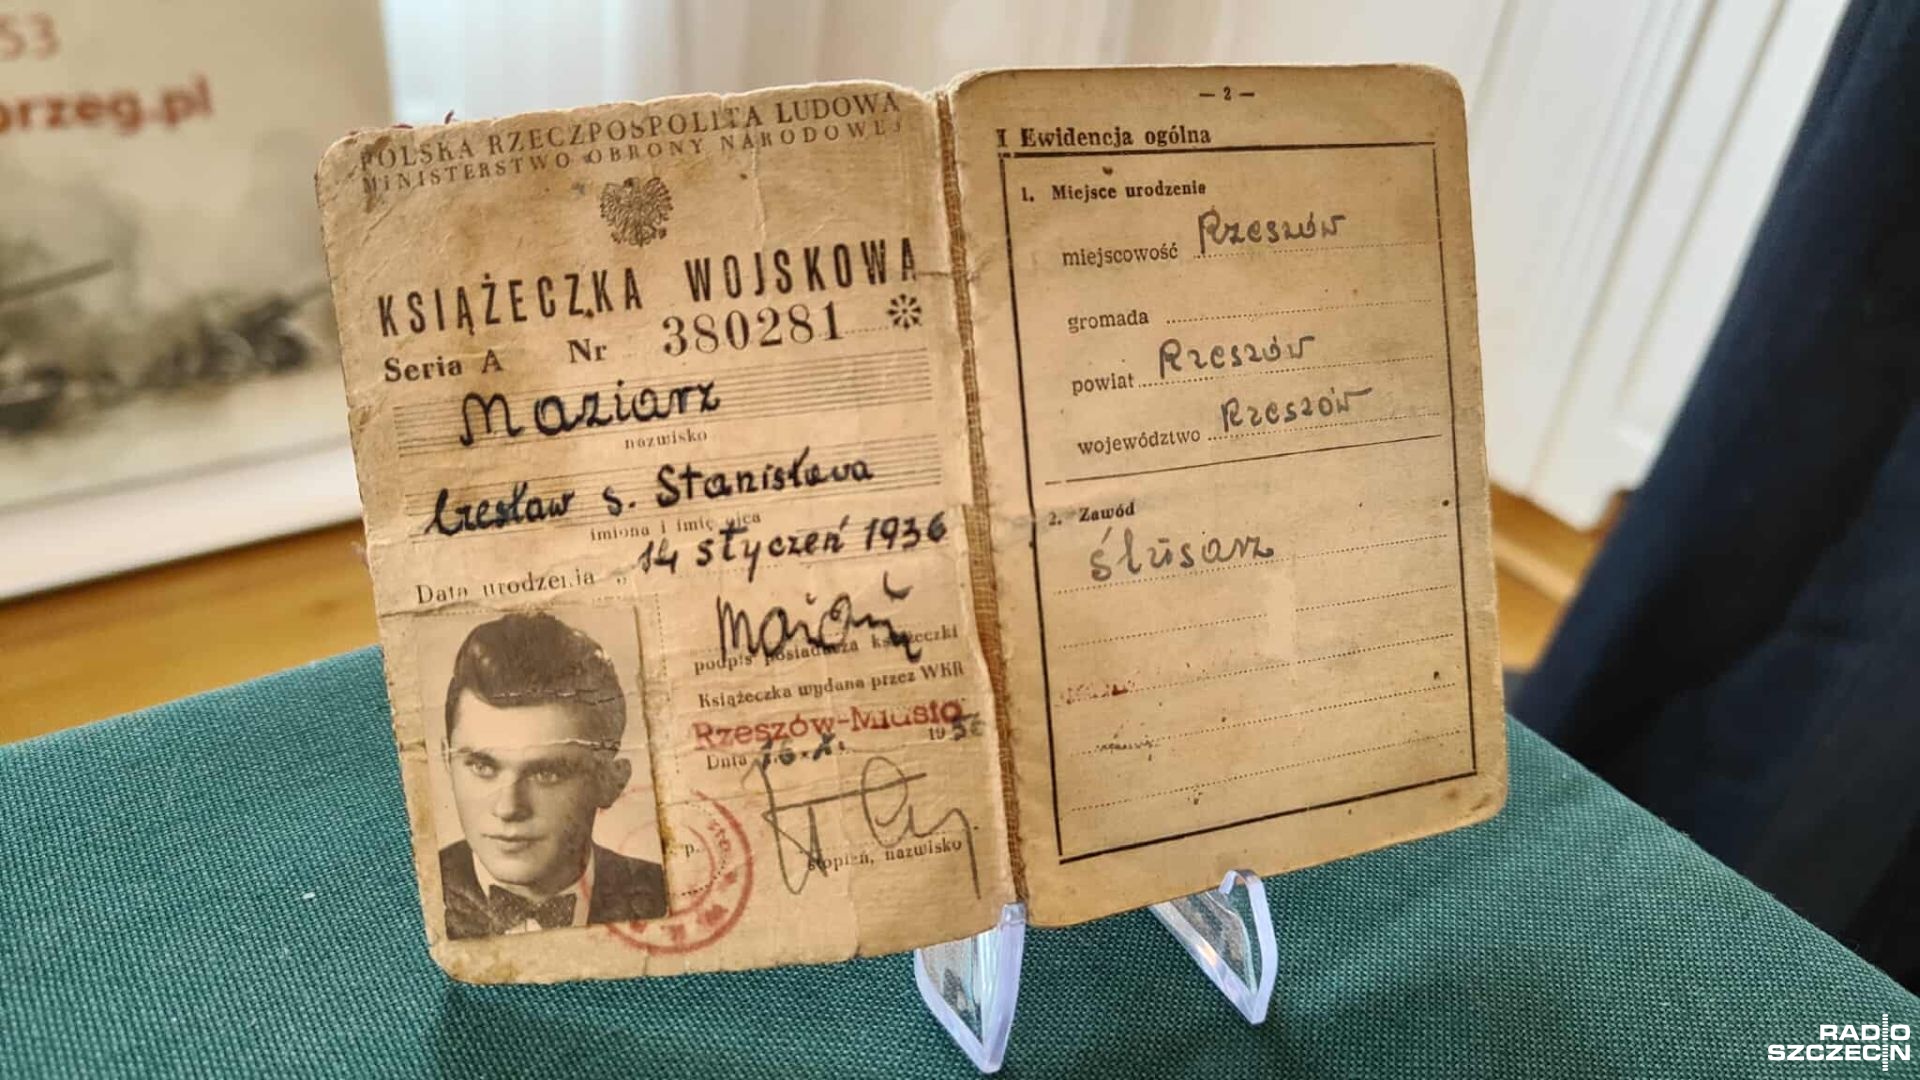 53
orzeg.pl
POLSKA RZECZPOSPOLITA LUDOWA
MINISTERSTWO OBRONY NARODOWEJ
KSIĄŻECZKA WOJSKOWA
Seria A Nr 380281
Maziarz
nazwisko
Czesław s. Stanisława
imiona i imię ojca
14 styczeń 1936
Data urodzenia
podpis posiadacza książeczki
Książeczka wydana przez WKR
Rzeszów-Miasto
Dnia 16.X. 1956
p.
stopień, nazwisko
— 2 —
I Ewidencja ogólna
1. Miejsce urodzenie
miejscowość Rzeszów
gromada
powiat Rzeszów
województwo Rzeszów
2. Zawód
ślusarz
RADIO
SZCZECIN